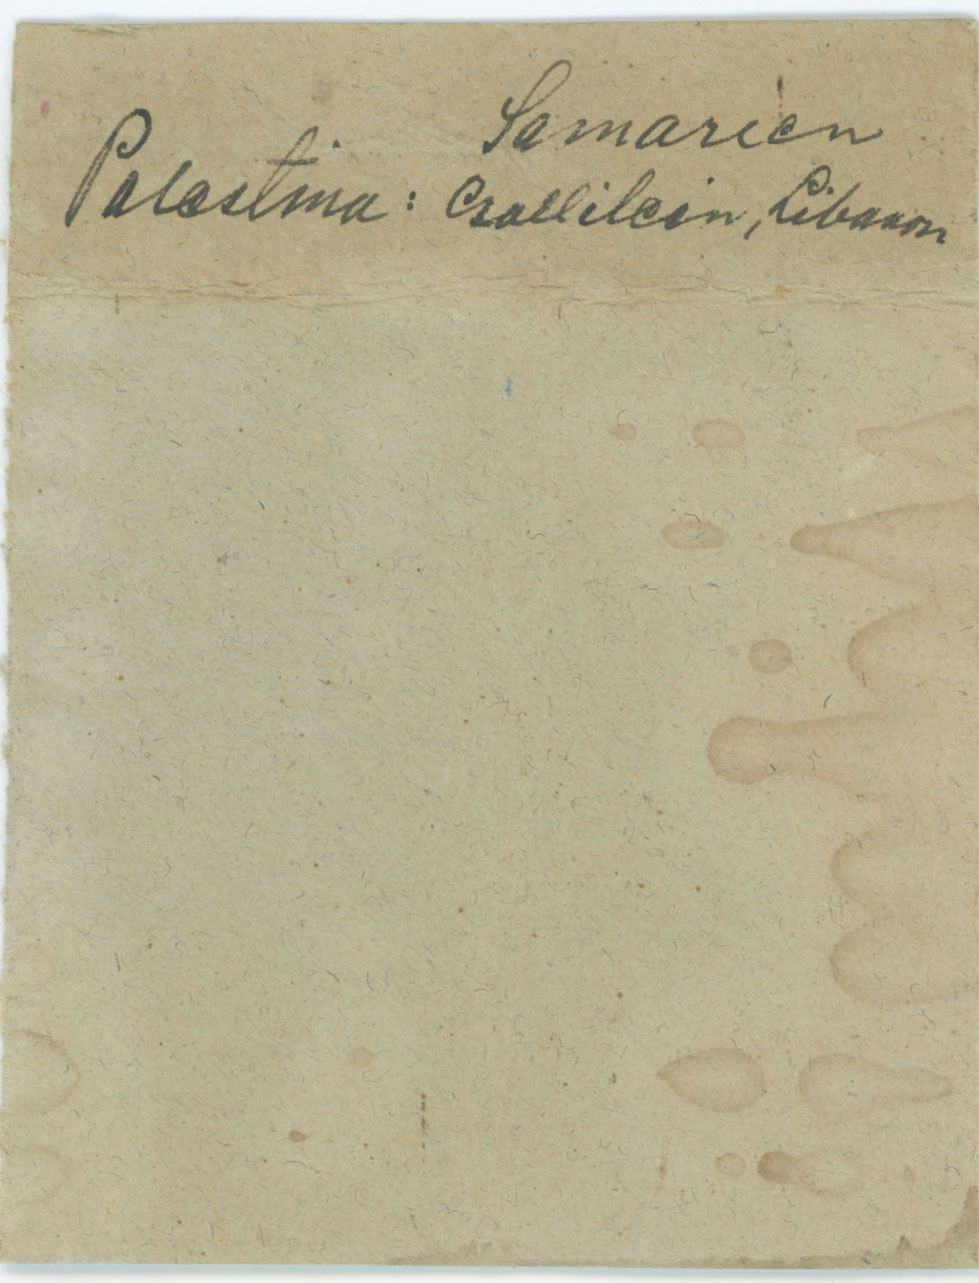 Samarien
Palästina: Gallilein, Libanon